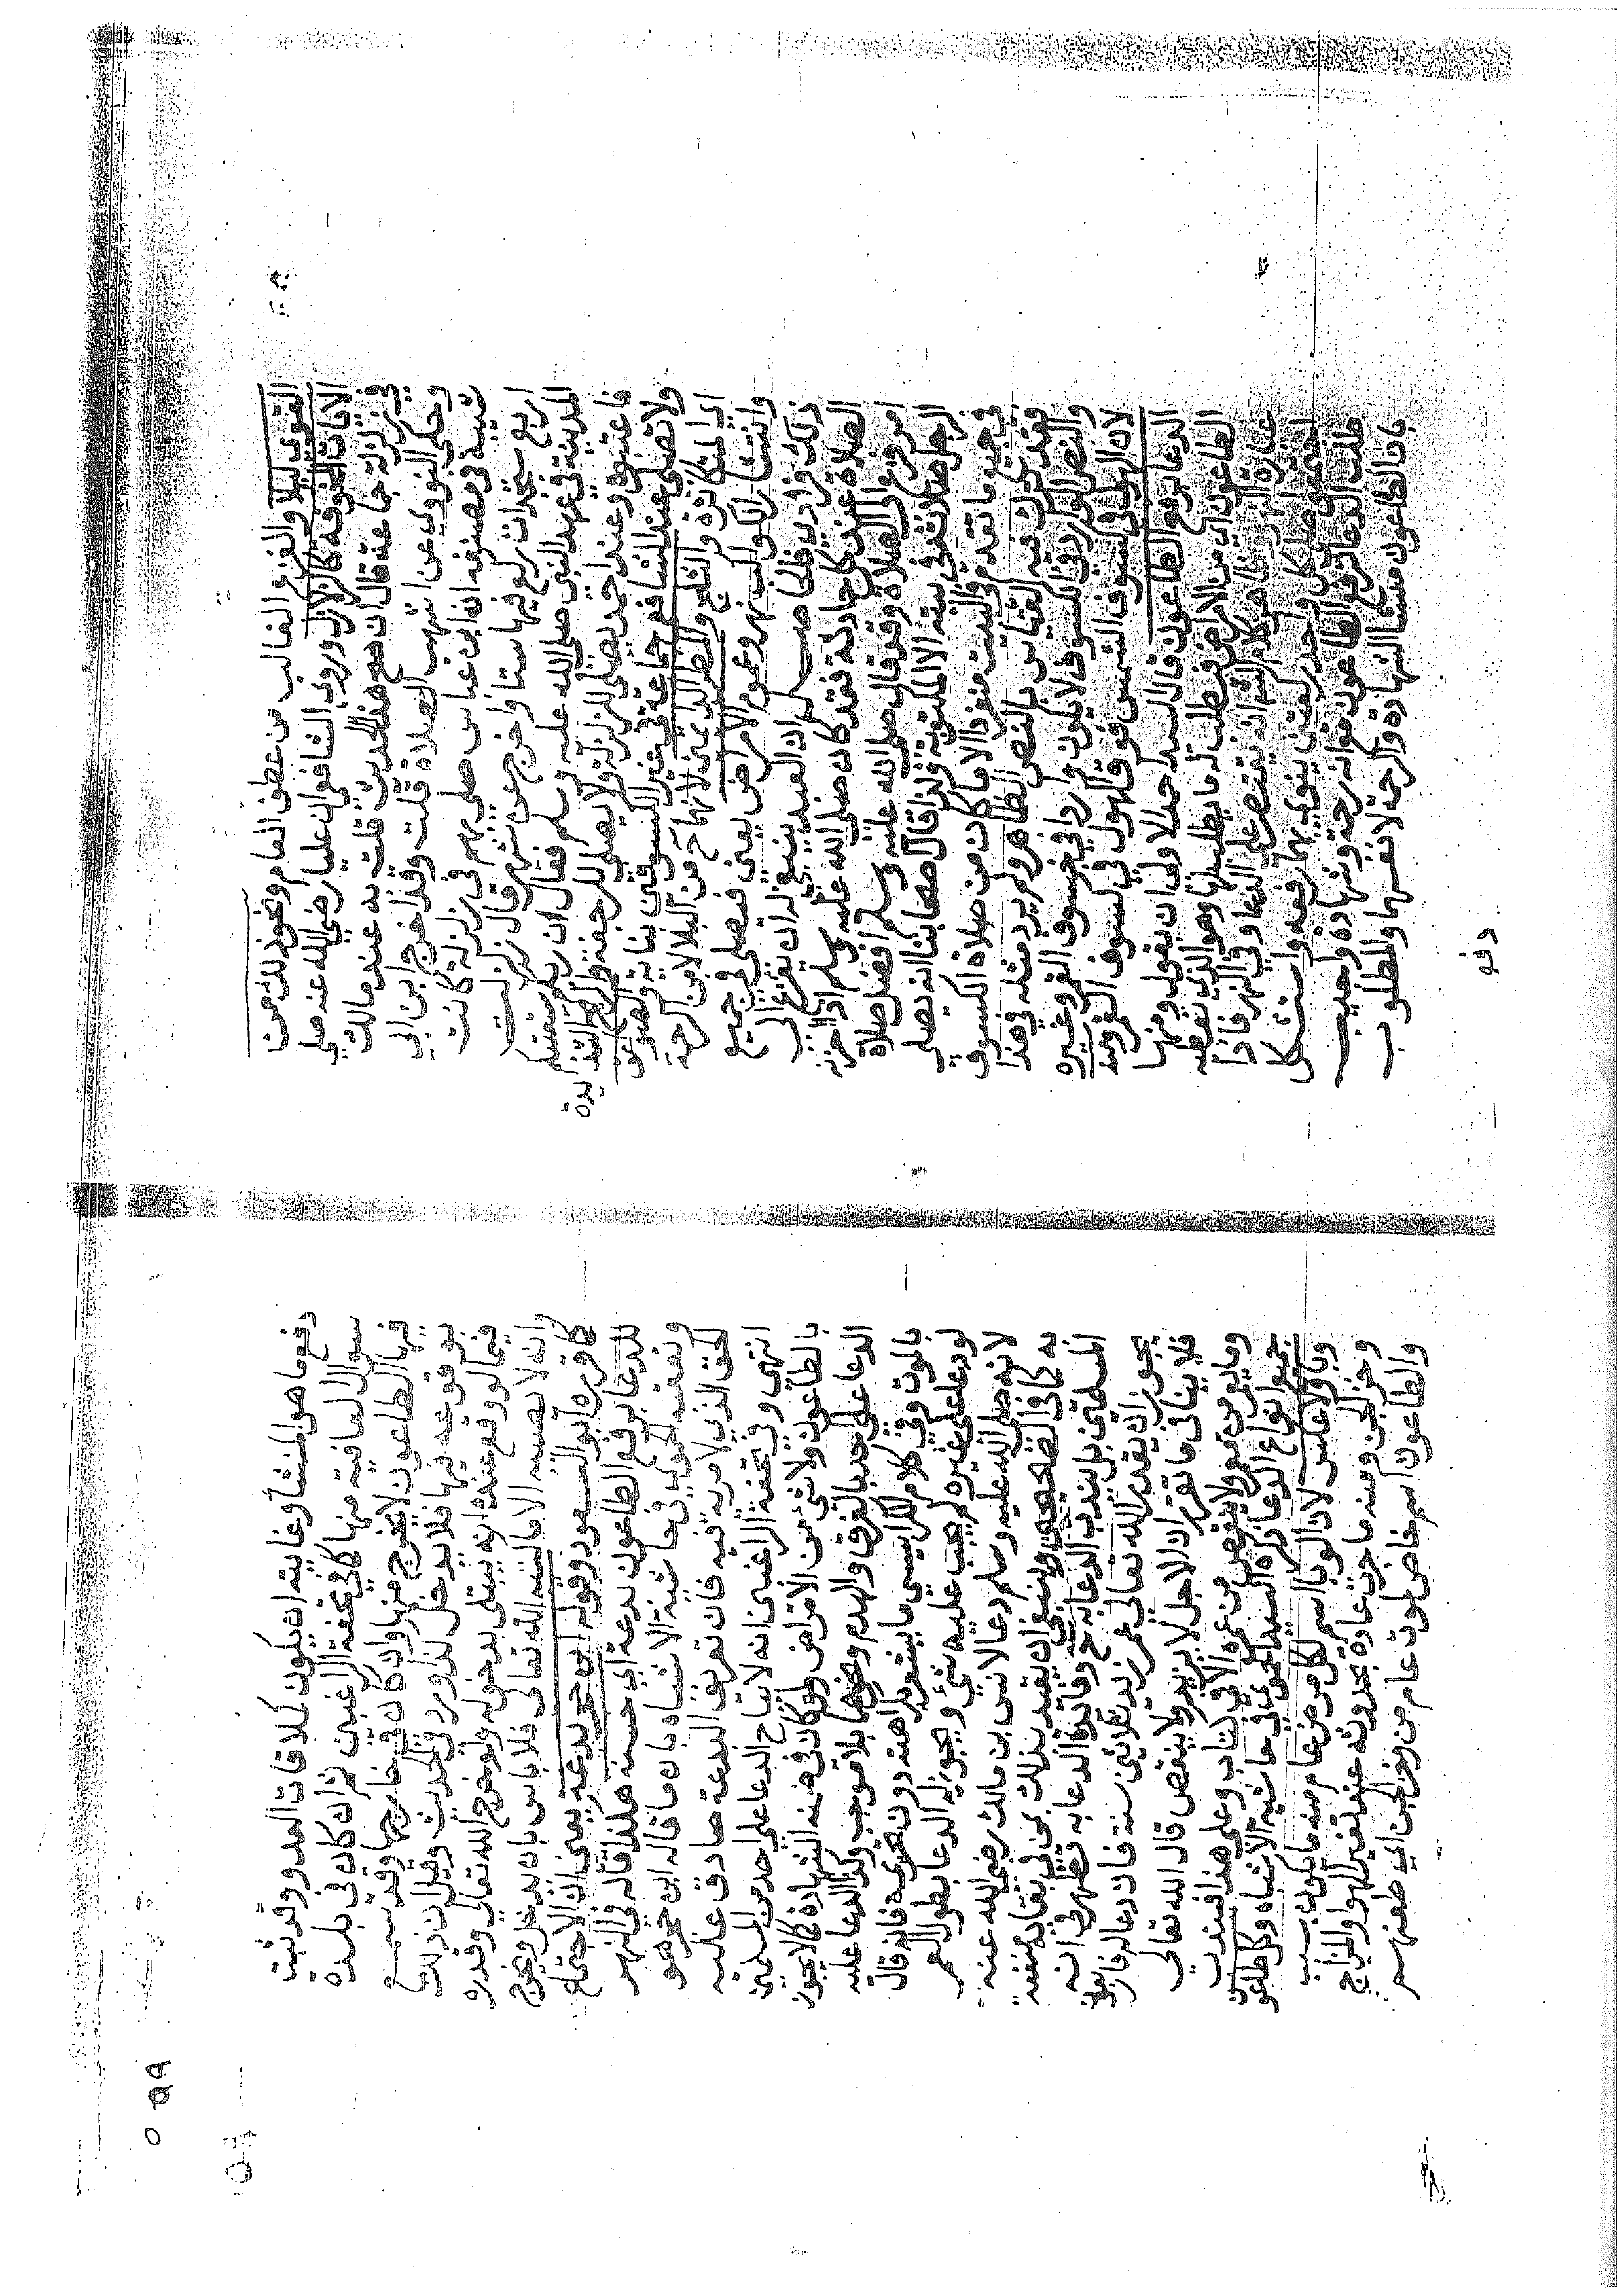 القوي ليلا والفزع الغالب من عطف العام ونحو ذلك من
الآيات المخوفة كالزلازل وروي الشافعي ان عليا رضي الله عنه صلي
في زلزلة جماعة قال ان صح هذا الحديث قلت به عند مالك
وحكى النووي عن اشهب الصلاة قلت وقد اخرج ابن ابي
شيبة في مصنفه ان ابن عباس صلى بهم في زلزلة كانت
اربع سجدات ركع فيها ستا واخرج عن شهر قال زلزلت
المدينة في عهد النبي صلى الله عليه وسلم فقال ان ربكم يستعتبكم
فاعتبوه وعند احمد يصلي للزلزلة ولا يصلي للرجفة والريح الشديدة
ولا تصلي عند الشافعي جماعة في غير الكسوفين بناية والصواعق
اي المتكاثرة والثلج والمطر الدائمين لانهما ح من البلا لا من الرحمة
وانتشار الكواكب نهر وعموم الامراض يعني فيصلي في جميع
ذلك فرادي فالحاصل ان العبد ينبغي له ان يفزع الى
الصلاة عند كل حادثة فقد كان صلى الله عليه وسلم اذا حزنه
امر فزع الى الصلاة وقد قال صلى الله عليه وسلم افضل صلاة
الرجل صلاته في بيته الا المكتوبة ولذا قال اصحابنا انه يصلي
في جميع ما تقدم في البيت منفردا الا ما كان من صلاة الكسوف
فقد يترك فيه القياس بالنص الظاهر ولم يرد مثله في هذا
والنص الوارد في الكسوف لا يكون واردا في خسوف القمر وغيره
لان الهول في كسوف الشمس فوق الهول في كسوف القمر ومنه
الدعا برفع الطاعون قال السيد احمد الاولى ان يقول ومنها
الطاعون اي من الامراض فيطلب له ما يطلب لها وهو الذي تعطيه
عبارة النهر وظاهر كلام الشرا انه يقتصر على الدعا وفي النهر فاذا
اجتمعوا صلى كل واحد ركعتين ينوي بهما رفعه واستشكل
طلب الدعا لرفع الطاعون مع انه رحمة وشهادة واجيب
بان الطاعون منشا الشهادة والرحمة لا نفسهما والمطلوب
دفع
دفع ما هو المنشا وغايته ان يكون كملاقات العدو وقد ثبت
سوال العافية منها كما في تحفة الراغبين ثم ان كان في بلدة
فيها الطاعون لا يخرج منها وان كان في خارجها وقد سمع
بوقوعه فيها فلا يدخل لما ورد في الحديث وقيل ان ذلك
فيما لو وقع عنده انه يبتلى بدخوله ولو خرج الله تعالى وقدره
وانه لا يصيبه الا ما كتبه الله تعالى فلا باس بان يدخل ويخرج
كما قرره ابو السعود وقوله ابن حجر بدعة يعني ان الاجتماع
للدعا برفع الطاعون بدعة اي حسنة هكذا قاله في النهر
وتعقبه الحموي في حاشية الاشباه بان ما قاله ابن حجر هو
الحق الذي لا مرية فيه فان تعريف البدعة صادق عليه
انتهى وفي تحفة الراغبين انه لا يباح الدعا على احد من المسلمين
بالطاعون ولا شيء من الامراض ولو كان في ضمنه الشهادة كما لا يجوز
الدعا على احد بالغرق والهدم ونحوهما بلا موجب وكذا الدعا عليه
بالموت وفي كلام الكرابيسي ما يشعر بكراهته دون تحريمه فانه قال
لو دعا على غيره لم يجب عليه شيء ويجوز له الدعا بطول العمر
لانه صلى الله عليه وسلم دعا لانس بن مالك رضي الله عنه
به كما في الصحيحين وينبغي ان يقيد بذلك بمن في بقايه منفعة
للمسلمين بل يندب الدعا له ح وفايدة الدعا به تظهر في انه
يجوز ان يقدر الله تعالى عمر زيد ثلاثين سنة فان دعا له فاربعون
فلا ينافي ما تقرر ان الاجل لا يزيد ولا ينقص قال الله تعالى
وما يعمر من معمر ولا ينقص من عمره الا في كتاب وعلى هذا فيندب
جميع انواع الدعا ذكره السيد الحموي في حاشية الاشباه وكل طاعون
وبا ولا عكس لان الوبا اسم لكل مرض عام منه ما يكون بسبب
وخز الجن ومنه ما جرت عادة بحدوثه عند تغير الهوا والمزاج
والطاعون اسم خاص لموت عام من وخز الجن اي طعنهم